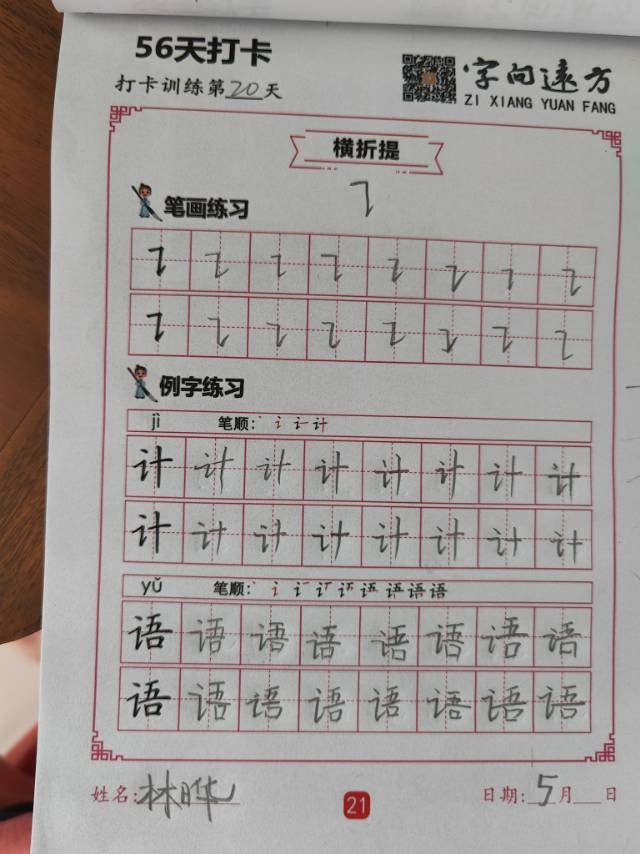 56天打卡
打卡训练第20天
字向远方
ZI XIANG YUAN FANG
横折提
㇊
笔画练习
㇊ ㇊ ㇊ ㇊ ㇊ ㇊ ㇊ ㇊
㇊ ㇊ ㇊ ㇊ ㇊ ㇊ ㇊ ㇊
例字练习
jì 笔顺: 丶 讠 计
计 计 计 计 计 计 计 计
计 计 计 计 计 计 计 计
yǔ 笔顺: 语
语 语 语 语 语 语 语 语
语 语 语 语 语 语 语 语
姓名: 林晔
21
日期: 5月 日